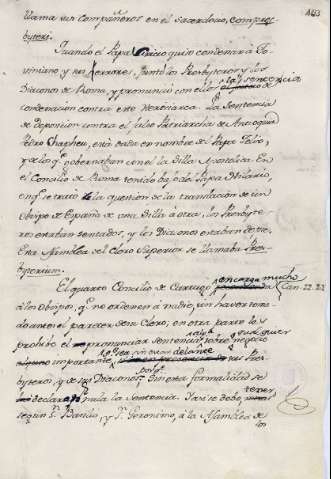 llama sus Compañeros en el Sacerdocio, Compres-
byteri.
Quando el Papa Siricio quiso condenar à Jo-
viniano y sus Errores, juntó los Presbyteros y los
Diaconos de Roma, y pronunció con ellos la sentencia
de condenacion contra este Heresiarca. La Sentencia
de Deposicion contra el falso Patriarcha de Antioquia
Pedro está dada en nombre del Papa Felix,
y de los qe. gobernaban con el la Silla Apostolica. En
el Concilio de Roma tenido bajo del Papa Hilario,
en qe. se trató la question de la translacion de un
Obispo de España de una Silla à otra, los Presbyte-
ros estaban sentados, y los Diaconos estaban de pie.
Esta Asamblea del Clero Superior se llamaba Pres-
byterium.
El quarto Concilio de Cartago encarga mucho Can. 22. 23
à los Obispos, qe. no ordenen à nadie, sin haver toma-
do antes el parecer de su Clero, en otra parte les
prohibe el pronunciar sentencia sobre qualquier negocio
importante, sus Pres-
byteros, y de sus Diaconos. formalidad se
declara nula la Sentencia. Y assi se debe tener,
segun Sn. Basilio, y Sn. Geronimo, à la Asamblea de
los